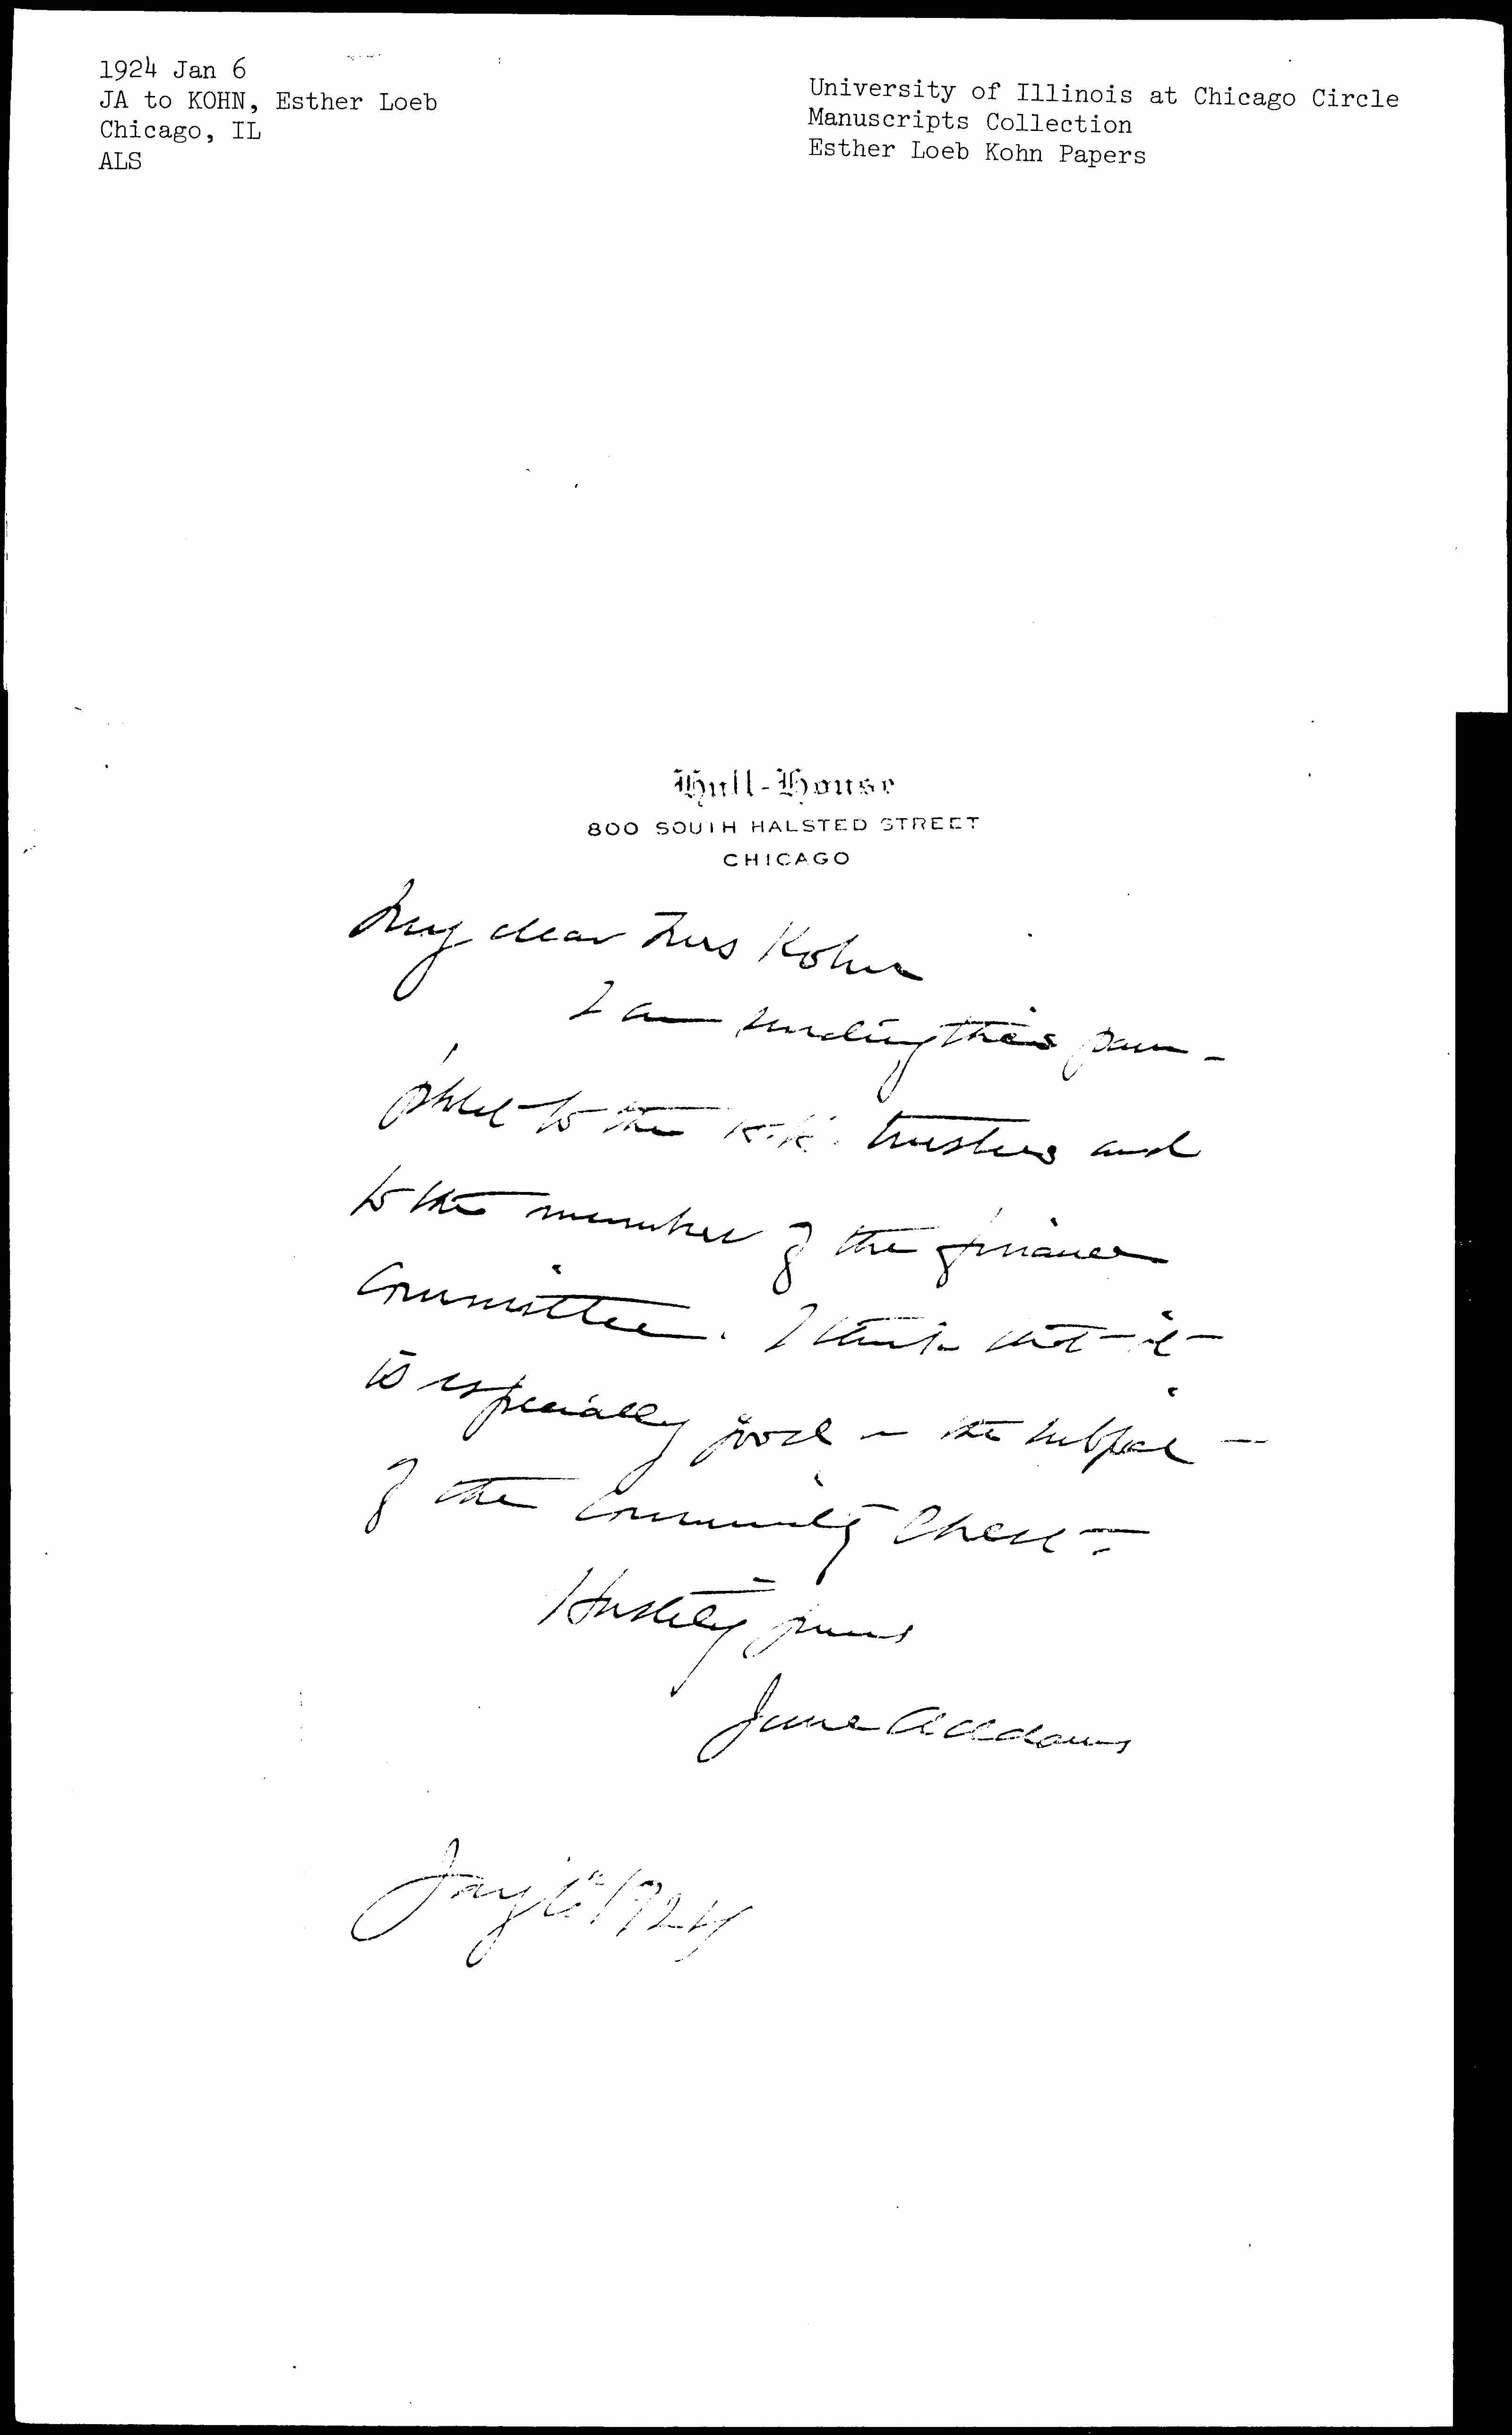 1924 Jan 6
JA to KOHN, Esther Loeb
Chicago, IL
ALS
University of Illinois at Chicago Circle
Manuscripts Collection
Esther Loeb Kohn Papers
Hull-House
800 SOUTH HALSTED STREET
CHICAGO
My dear Mrs Kohn
I am sending this pam-
phlet to the H.H. trustees and
to the member of the finance
Committee. I think that it
is especially good on the subject
of the Community Chest.
Hastily yours
Jane Addams
Jany 6" 1924